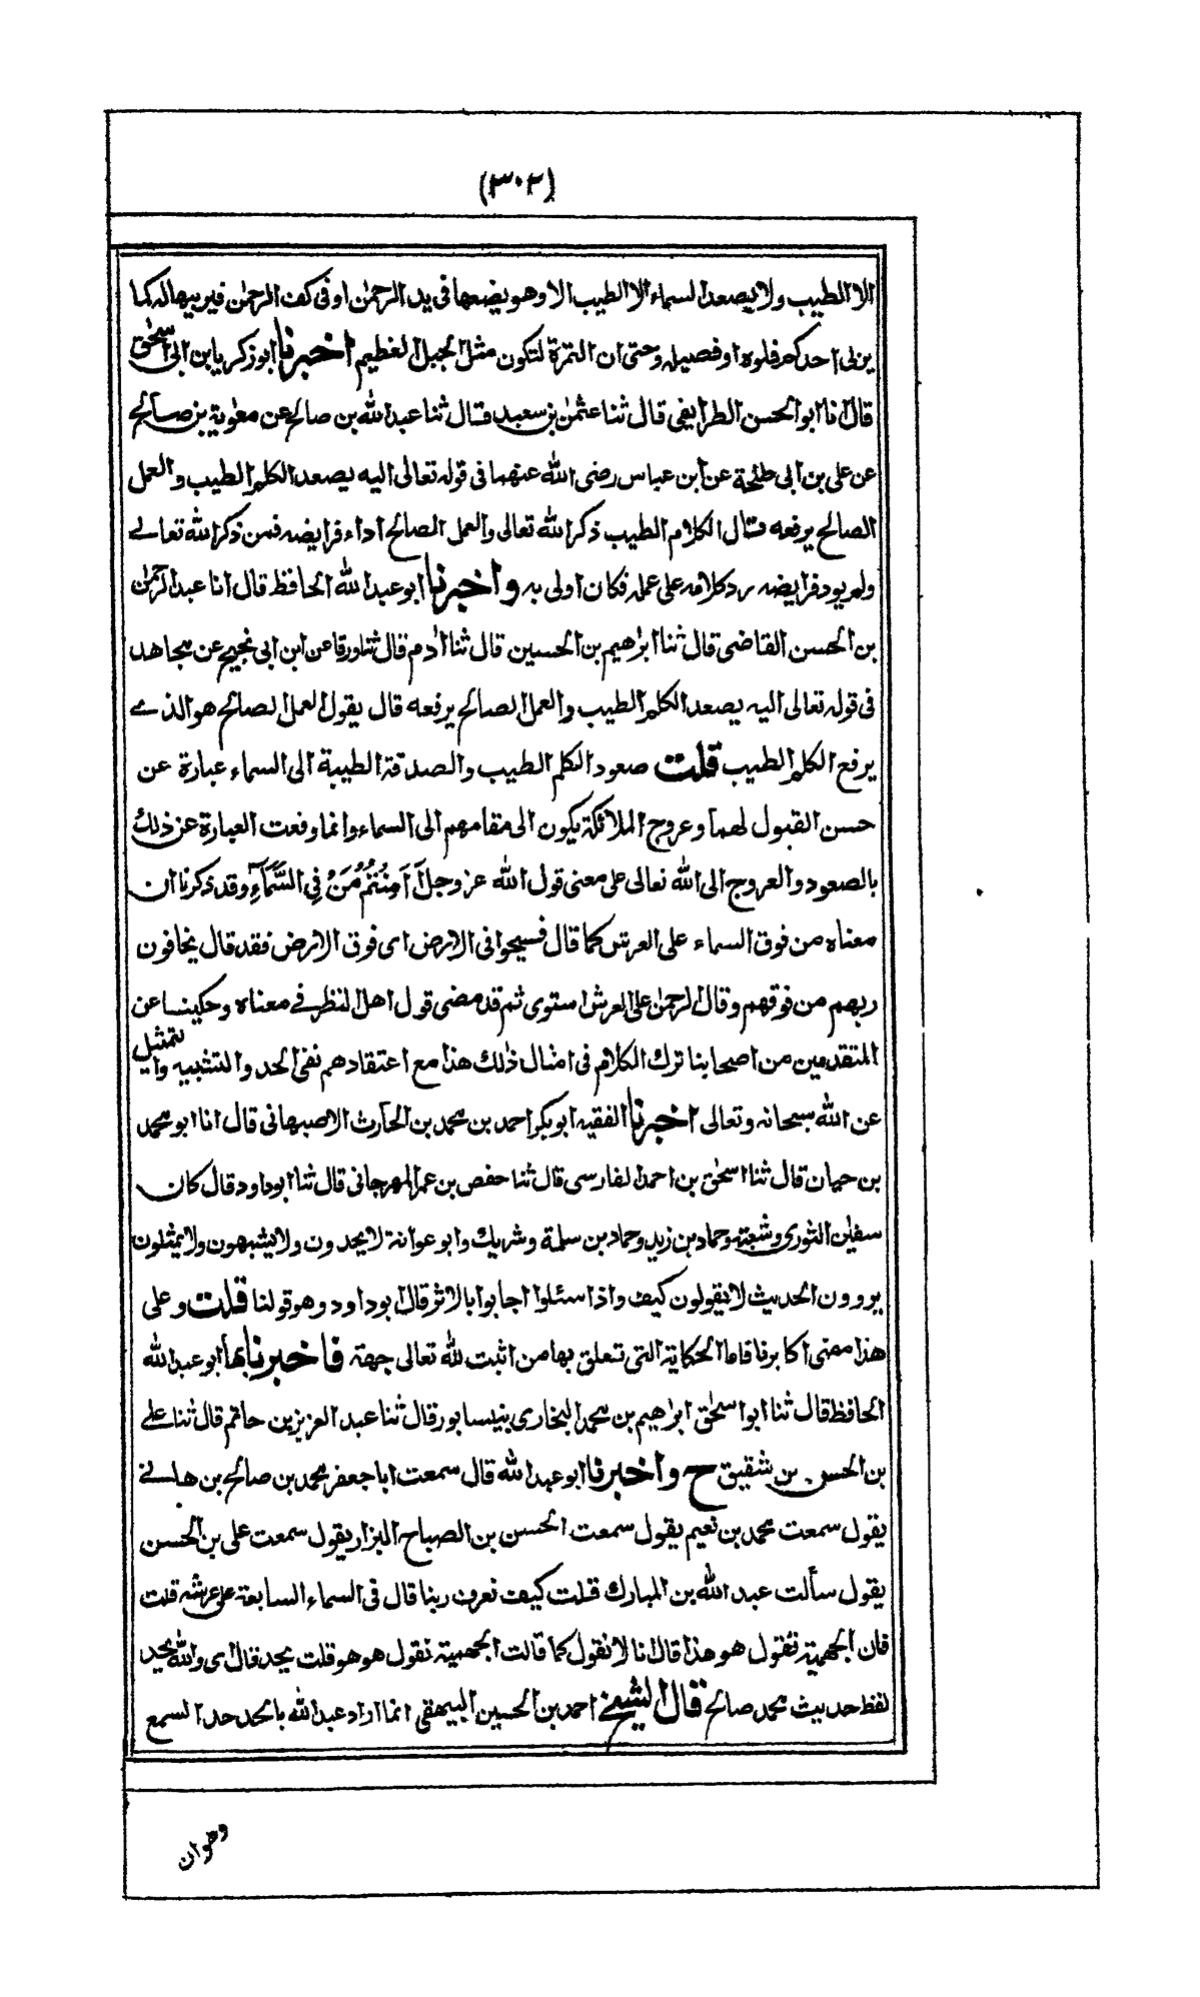 (٣٠٢)
الا الطيب ولا يصعد السماء الا الطيب الا وهو يضعها فى يد الرحمٰن او فى كف الرحمٰن فيربيها له كما
يربى احدكم فلوه او فصيله وحتى ان التمرة لتكون مثل الجبل العظيم اخبرنا ابو زكريا بن ابى اسحٰق
قال انا ابو الحسن الطرايفى قال ثنا عثمٰن بن سعيد قال ثنا عبد الله بن صالح عن معٰوية بن صالح
عن على بن ابى طلحة عن ابن عباس رضى الله عنهما فى قوله تعالى اليه يصعد الكلم الطيب والعمل
الصالح يرفعه قال الكلام الطيب ذكر الله تعالى والعمل الصالح اداء فرايضه فمن ذكر الله تعالے
ولم يود فرايضه رد كلامه على عمله فكان اولى به واخبرنا ابو عبد الله الحافظ قال انا عبد الرحمٰن
بن الحسن القاضى قال ثنا ابرٰهيم بن الحسين قال ثنا اٰدم قال ثنا ورقا عن ابن ابى نجيح عن مجاهد
فى قوله تعالى اليه يصعد الكلم الطيب والعمل الصالح يرفعه قال يقول العمل الصالح هو الذے
يرفع الكلم الطيب قلت صعود الكلم الطيب والصدقة الطيبة الى السماء عبارة عن
حسن القبول لهما وعروج الملائكة يكون الى مقامهم الى السماء وانما وقعت العبارة عن ذلك
بالصعود والعروج الى الله تعالى على معنى قول الله عز وجل أَأَمِنْتُمْ مَنْ فِي السَّمَآءِ وقد ذكرنا ان
معناه من فوق السماء على العرش كما قال فسيحوا فى الارض اى فوق الارض فقد قال يخافون
ربهم من فوقهم وقال الرحمٰن على العرش استوى ثم قد مضى قول اهل النظر فے معناه وحكينا عن
المتقدمين من اصحابنا ترك الكلام فى امثال ذٰلك هذا مع اعتقادهم نفى الحد والتشبيه والتمثيل
عن الله سبحانه وتعالى اخبرنا الفقيه ابو بكر احمد بن محمد بن الحارث الاصبهانى قال انا ابو محمد
بن حيان قال ثنا اسحٰق بن احمد الفارسى قال ثنا حفص بن عمر المهرجانى قال ثنا ابو داود قال كان
سفيٰن الثورى وشعبة وحماد بن زيد وحماد بن سلمة وشريك وابو عوانة لا يحدون ولا يشبهون ولا يمثلون
يروون الحديث لا يقولون كيف واذا سئلوا اجابوا بالاثر قال ابو داود وهو قولنا قلت وعلى
هذا مضى اكابرنا فاما الحكاية التى تعلق بها من اثبت لله تعالى جهة فاخبرنا بها ابو عبد الله
الحافظ قال ثنا ابو اسحٰق ابرٰهيم بن محمد البخارى بنيسابور قال ثنا عبد العزيز بن حاتم قال ثنا علے
بن الحسن بن شقيق ح واخبرنا ابو عبد الله قال سمعت ابا جعفر محمد بن صالح بن هانے
يقول سمعت محمد بن نعيم يقول سمعت الحسن بن الصباح البزار يقول سمعت على بن الحسن
يقول سألت عبد الله بن المبارك قلت كيف نعرف ربنا قال فى السماء السابعة على عرشه قلت
فان الجهمية تقول هو هذا قال انا لا نقول كما قالت الجهمية نقول هو هو قلت بحد قال اى والله بحد
لفظ حديث محمد صالح قال الشيخ احمد بن الحسين البيهقى انما اراد عبد الله بالحد حد السمع
وهو ان